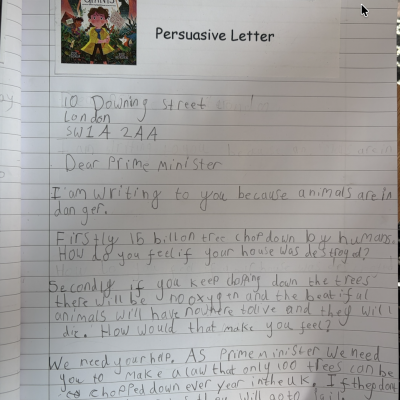 Persuasive Letter
10 Downing Street
London
SW1A 2AA
Dear Prime Minister
I am writing to you because animals are in
danger.
Firstly 15 billon tree chop down by humans.
How do you feel if your house was destroyed?
Secondly if you keep doping down the trees
there will be no oxygen and the beatiful
animals will have nowhere to live and they will
die. How would that make you feel?
We need your help. As Prime minister we need
you to make a law that only 100 trees can be
chopped down ever year in the uk. If the
will go to jail.